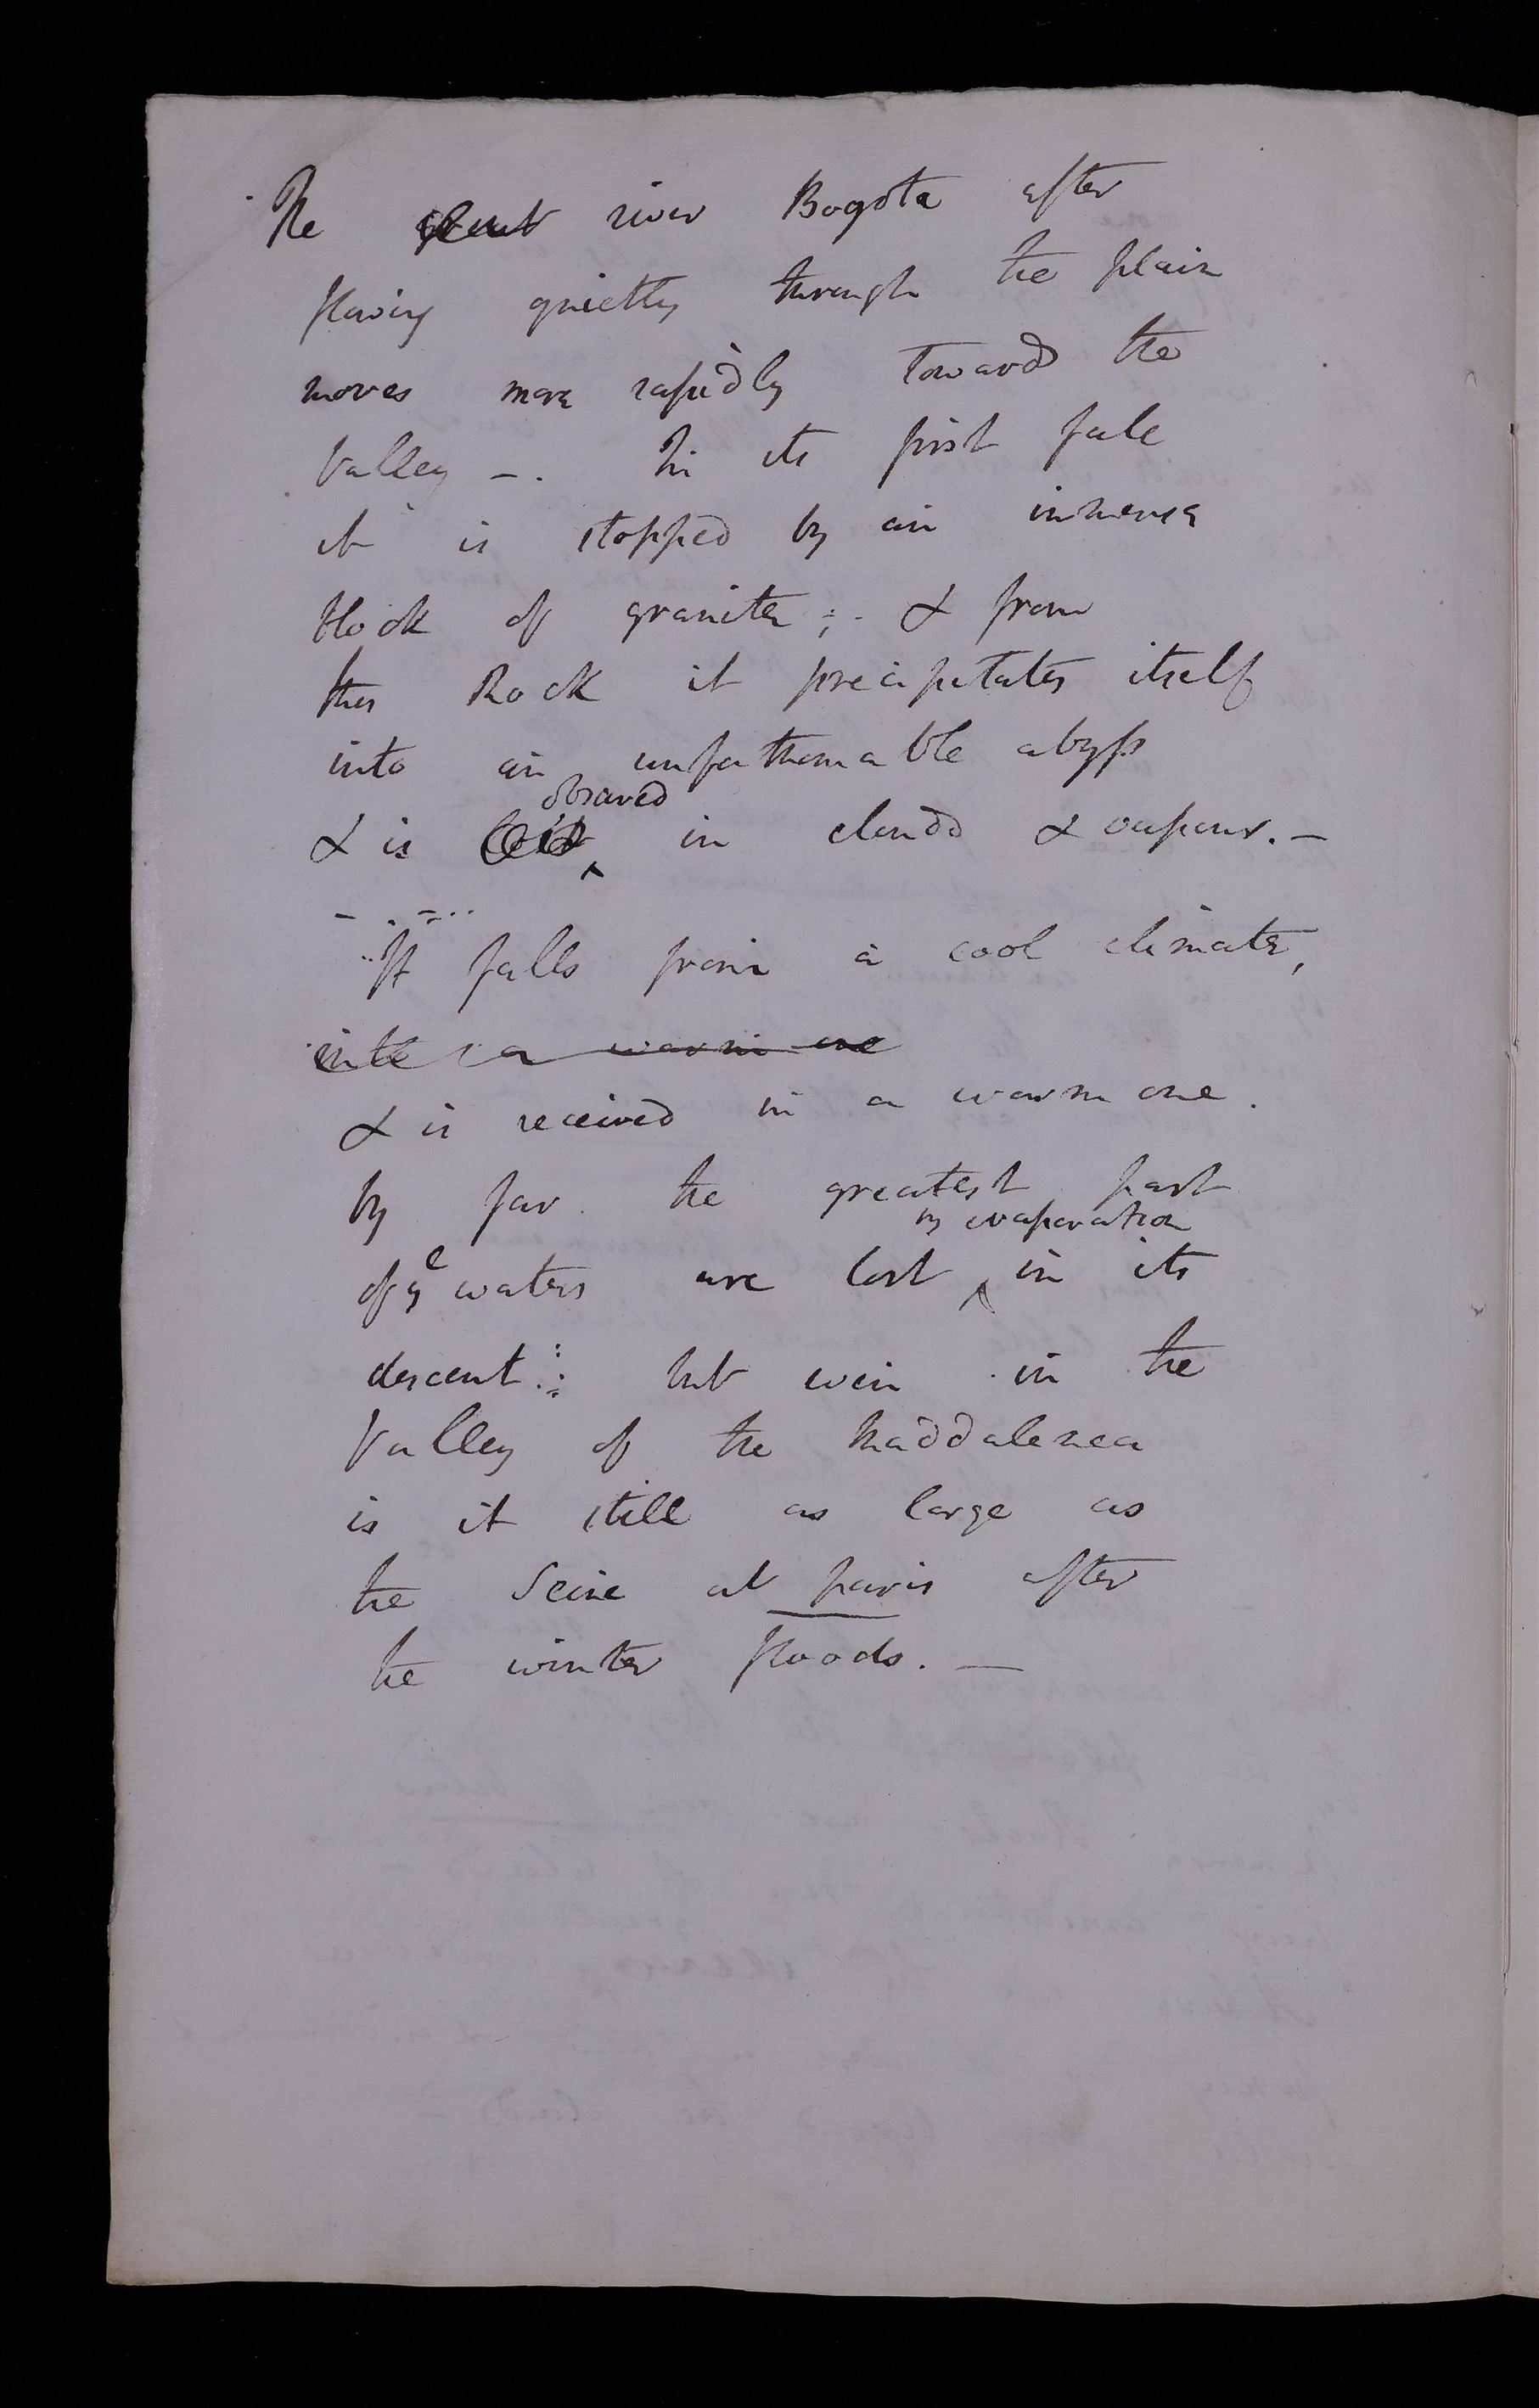 The river Bogota after
flowing quietly through the plain
moves more rapidly toward the
Valley –. In its first fall
it is stopped by an immense
block of granite; & from
this Rock it precipitates itself
into an unfathomable abyss
obscured
& is in clouds & vapour. –
It falls from a cool climate,
into a warm one
& is received in a warm one.
by far the greatest part
by evaporation
of ye waters are lost ^ in its
descent: but even in the
Valley of the Maddalenea
is it still as large as
the Seine at paris after
the winter floods. —